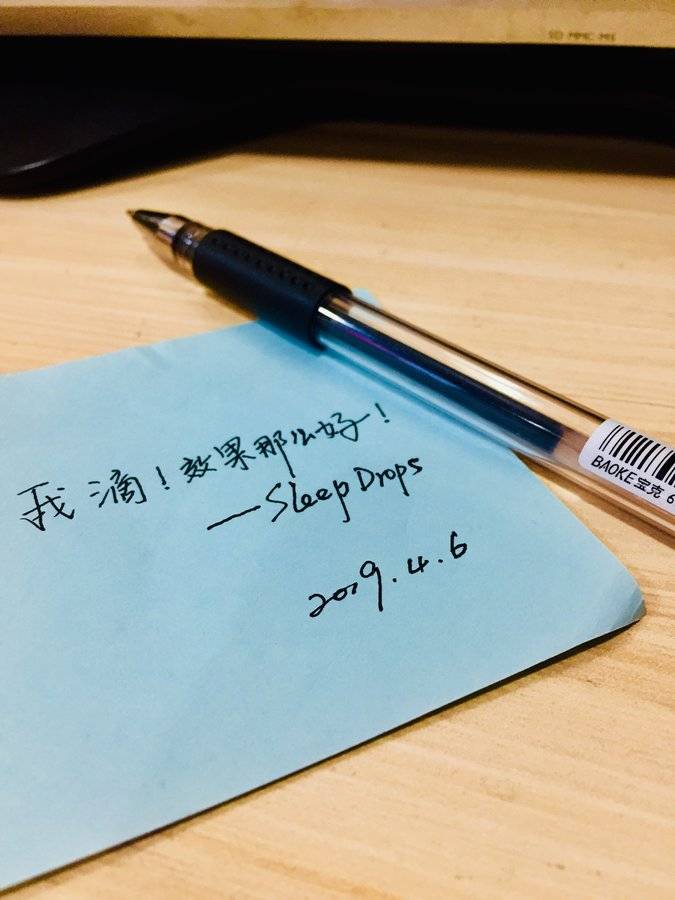 SD MMC MS
我滴！效果那么好！
—Sleep Drops
2019.4.6
BAOKE宝克 6